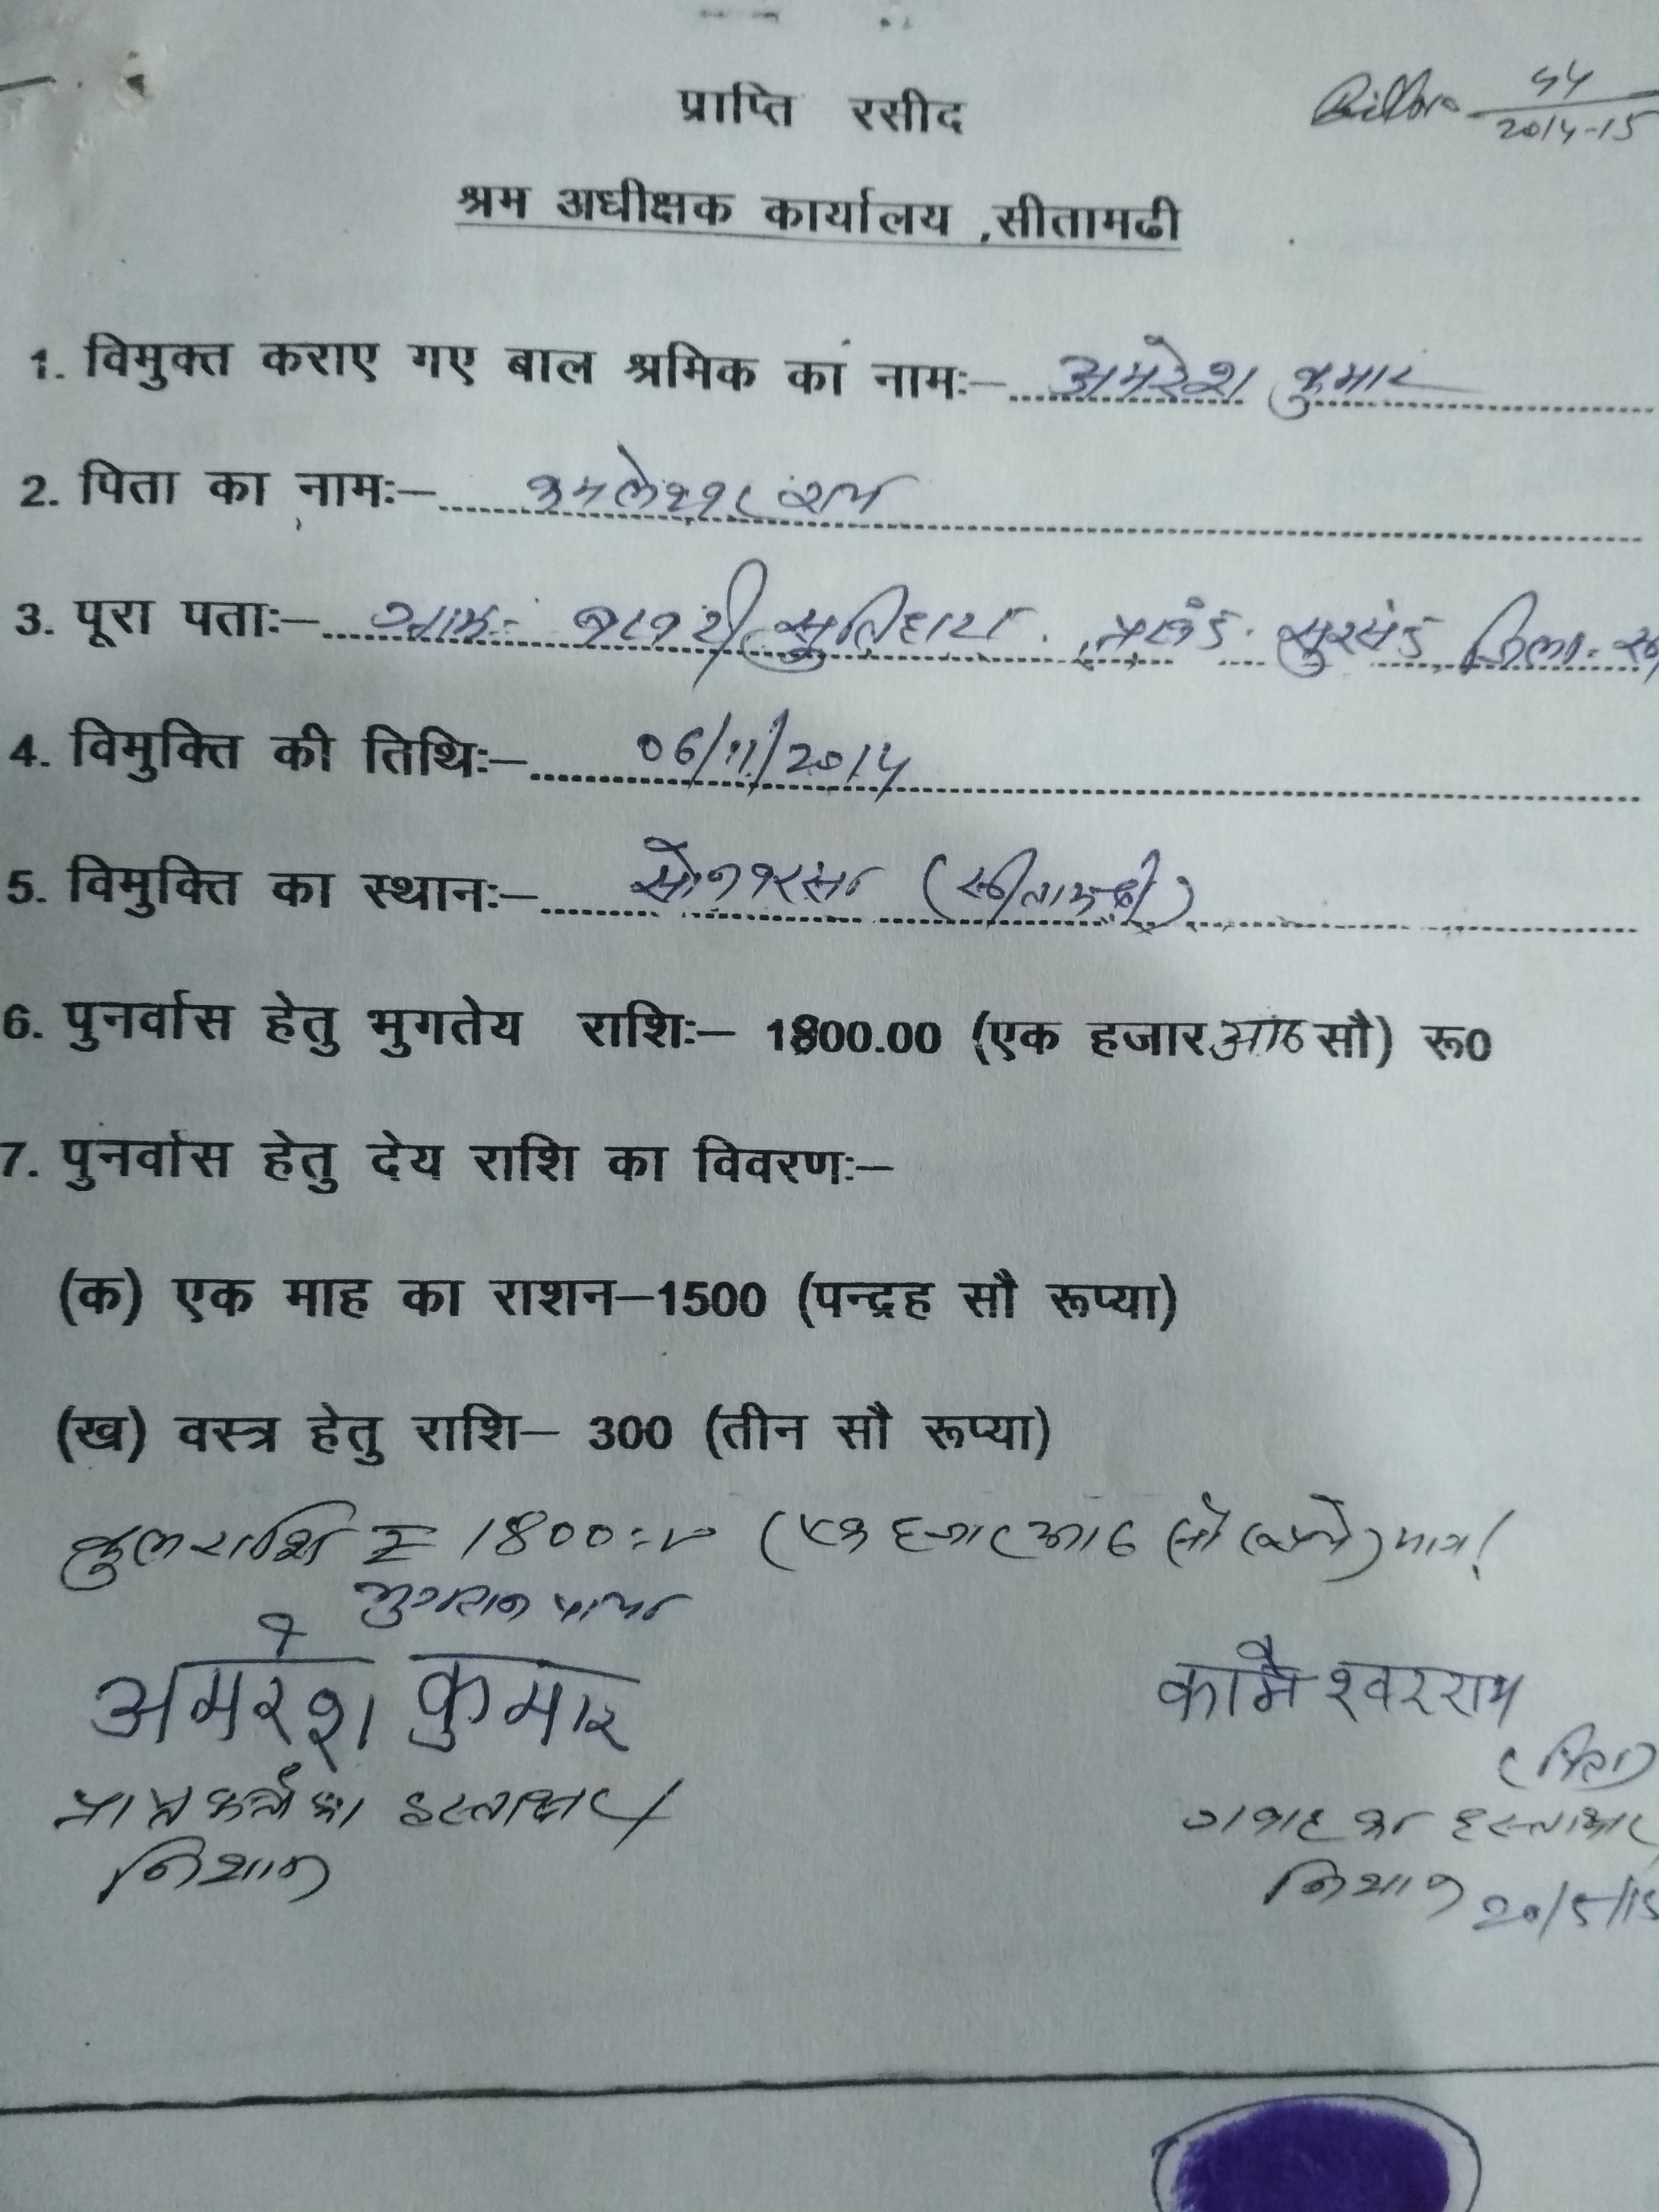 Bill No- 54/2014-15
प्राप्ति रसीद
श्रम अधीक्षक कार्यालय ,सीतामढी
1. विमुक्त कराए गए बाल श्रमिक का नामः– अमरेश कुमार
2. पिता का नामः– राम
3. पूरा पताः– ग्रामः- सुतिहारा प्रखंड- सुरसंड, जिला-
4. विमुक्ति की तिथिः– 06/11/2014
5. विमुक्ति का स्थानः– सोनबरसा (सीतामढ़ी)
6. पुनर्वास हेतु भुगतेय राशिः– 1800.00 (एक हजार आठ सौ) रू0
7. पुनर्वास हेतु देय राशि का विवरणः–
(क) एक माह का राशन–1500 (पन्द्रह सौ रूप्या)
(ख) वस्त्र हेतु राशि– 300 (तीन सौ रूप्या)
कुल राशि = 1800=00 (एक हजार आठ सौ रूपये) मात्र।
भुगतान पाया
अमरेश कुमार
कामैश्वर राय
(पिता)
प्राप्तकर्ता का हस्ताक्षर/
निशान
गवाह का हस्ताक्षर
निशान 20/5/15